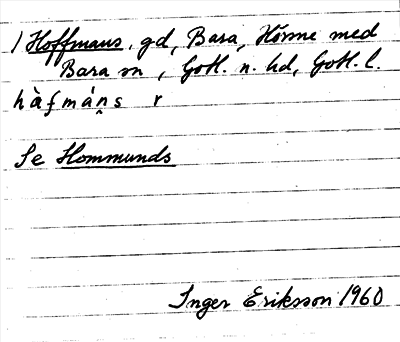 / Hoffmans, gd, Bara, Hörsne med
Bara sn, Gotl. n. hd, Gotl. l.
hàfmán̥s r
Se Hommunds
Inger Eriksson 1960